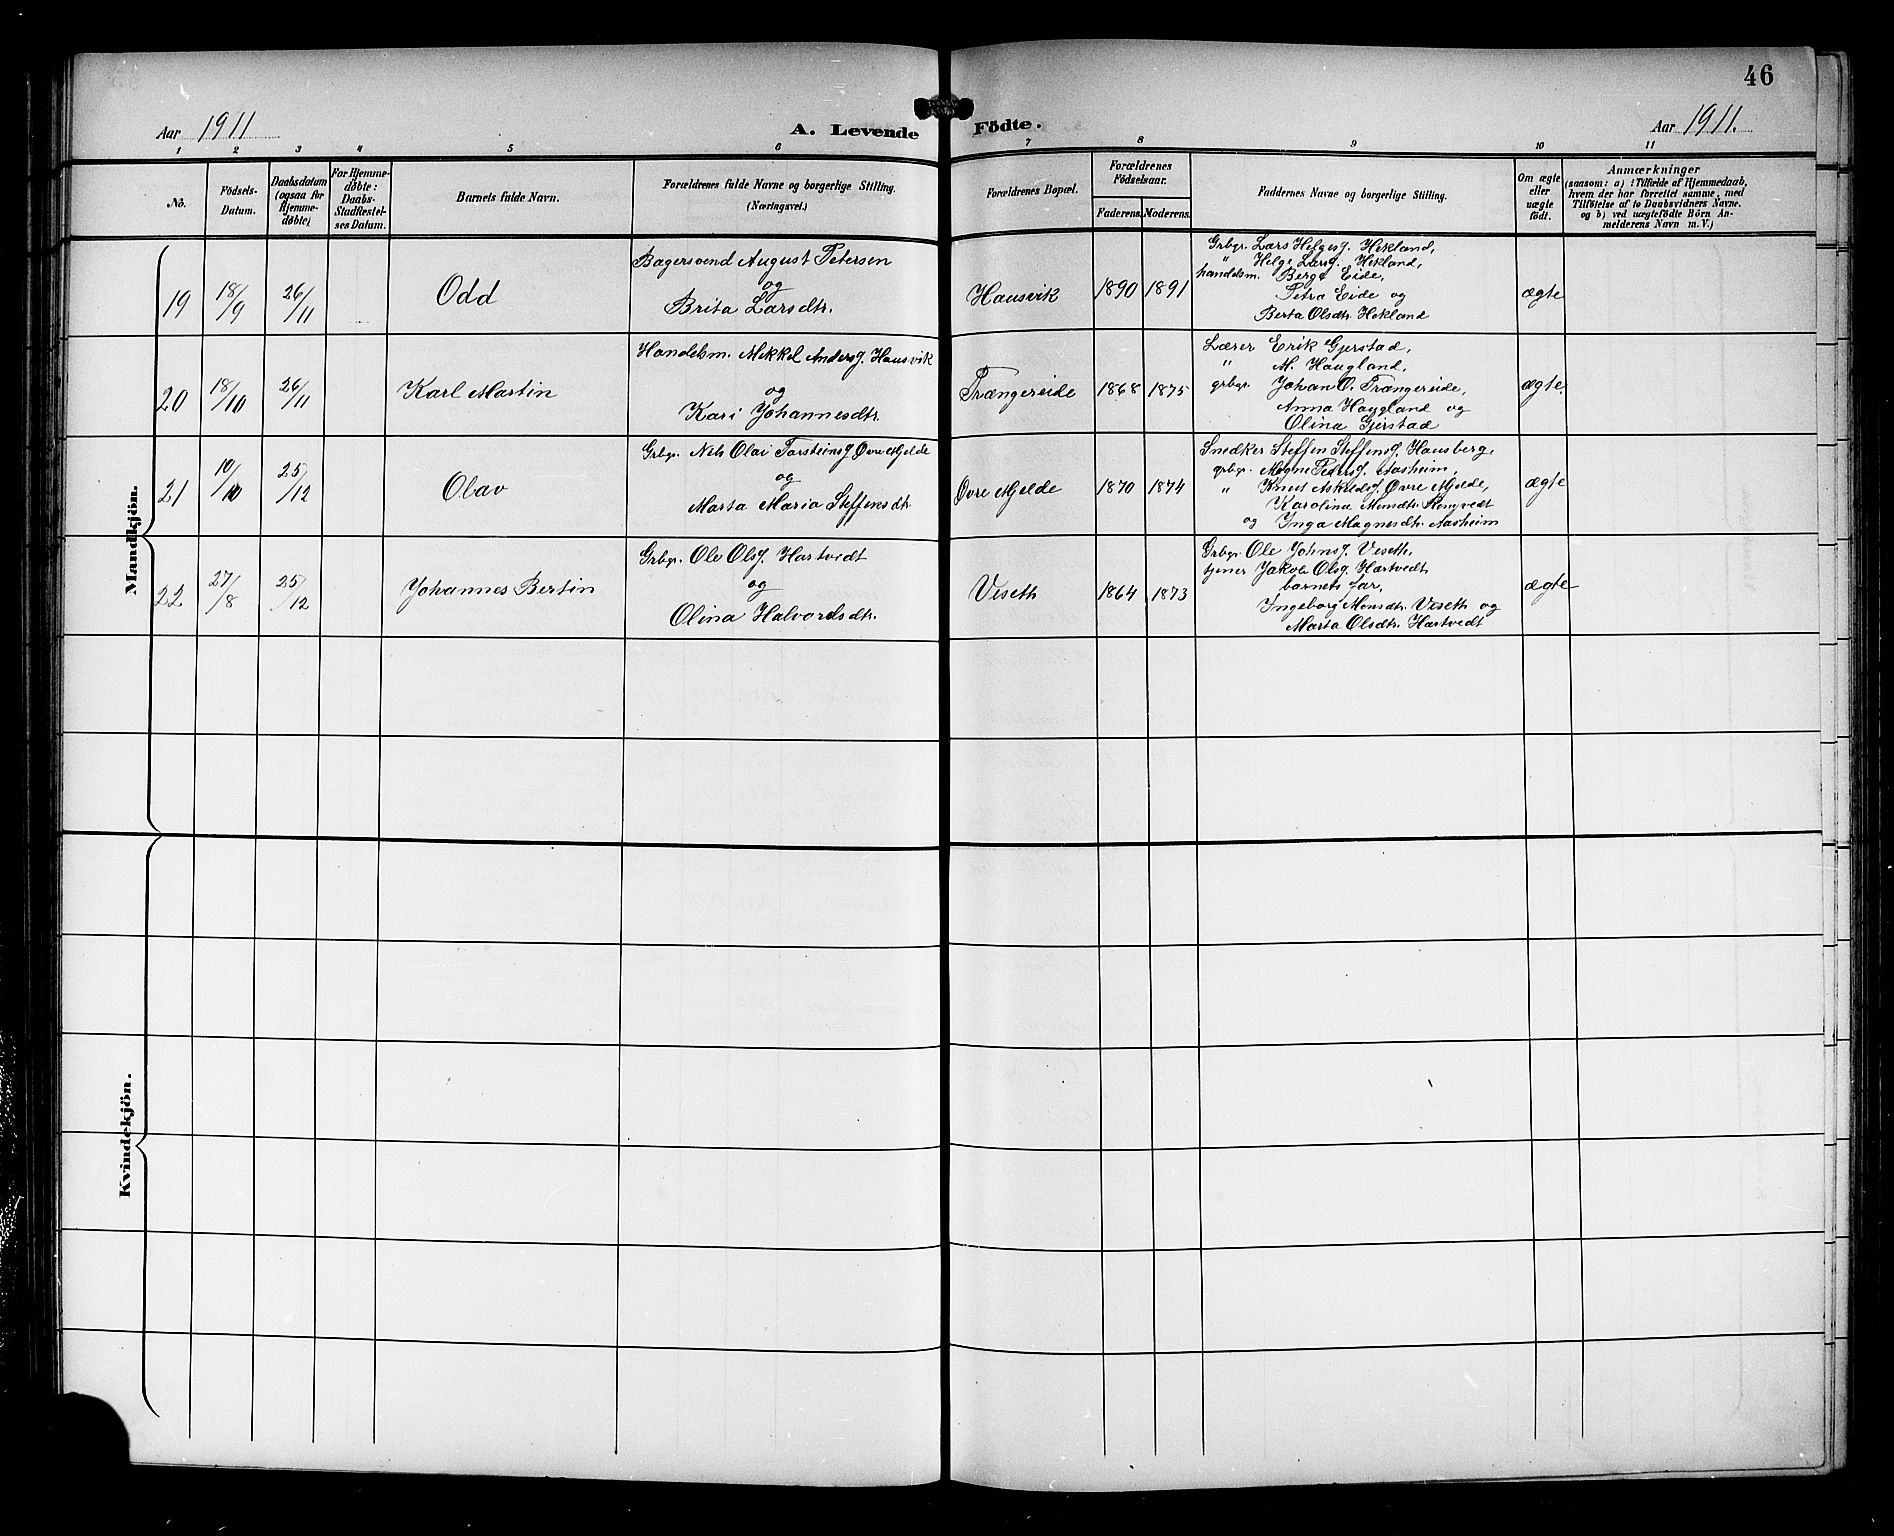 46
Aar 1911
A. Levende Födte.
Aar 1911.
1 2 3 4 5 6 7 8 9 10 11
No.
Födsels-
Datum.
Daabsdatum
(ogsaa for
Hjemme-
döbte)
For Hjemme-
döbte:
Daabs-
Stadfæstel-
ses Datum.
Barnets fulde Navn.
Forældrenes fulde Navne og borgerlige Stilling.
(Næringsvei.)
Forældrenes Bopæl.
Forældrenes
Födselsaar.
Faderens. Moderens.
Faddernes Navne og borgerlige Stilling.
Om ægte
eller
uægte
födt.
Anmærkninger
(saasom: a) i Tilfælde af Hjemmedaab,
hvem der har forrettet samme, med
Tilföielse af to Daabsvidners Navne.
og b) ved uægtefödte Börn An-
melderens Navn m. V.)
Mandkjön.
19
18/9
26/11
Odd
Bagersvend August Petersen
og
Brita Larsdtr.
Hausvik
1890
1891
Grbgr. Lars Helgesg. Hekland,
" Helge Larsg. Hekland,
handelsm. Berge Eide,
Petra Eide og
Berta Olsdtr. Hekland
ægte
20
18/10
26/11
Karl Martin
Handelsm. Mikkel Andersg. Hausvik
og
Kari Johannesdtr.
Trængereide
1868
1875
Lærer Erik Gjerstad,
" M. Haugland,
grbgr. Johan O. Trængereide,
Anna Haugland og
Olina Gjerstad
ægte.
21
10/10
25/12
Olav
Grbgr. Nils Olai Torsteinsg Øvre Mjelde
og
Marta Maria Steffensdtr.
Øvre Mjelde
1870
1874
Snedker Steffen Steffensg. Hausberg,
grbgr. Mogne Pedersg. Aasheim,
" Knut Askildsg. Øvre Mjelde,
Karolina Monsdtr. Romvedt
og Inga Magnesdtr. Aasheim
ægte
22
27/8
25/12
Johannes Bertin
Grbgr. Ole Olsg. Hartvedt
og
Olina Halvordsdtr.
Viseth
1864
1873
Grbgr. Ole Johnsg. Viseth,
tjener Jakob Olsg. Hartvedt
barnets far,
Ingeborg Monsdtr. Viseth og
Marta Olsdtr. Hartvedt
ægte
Kvindekjön.